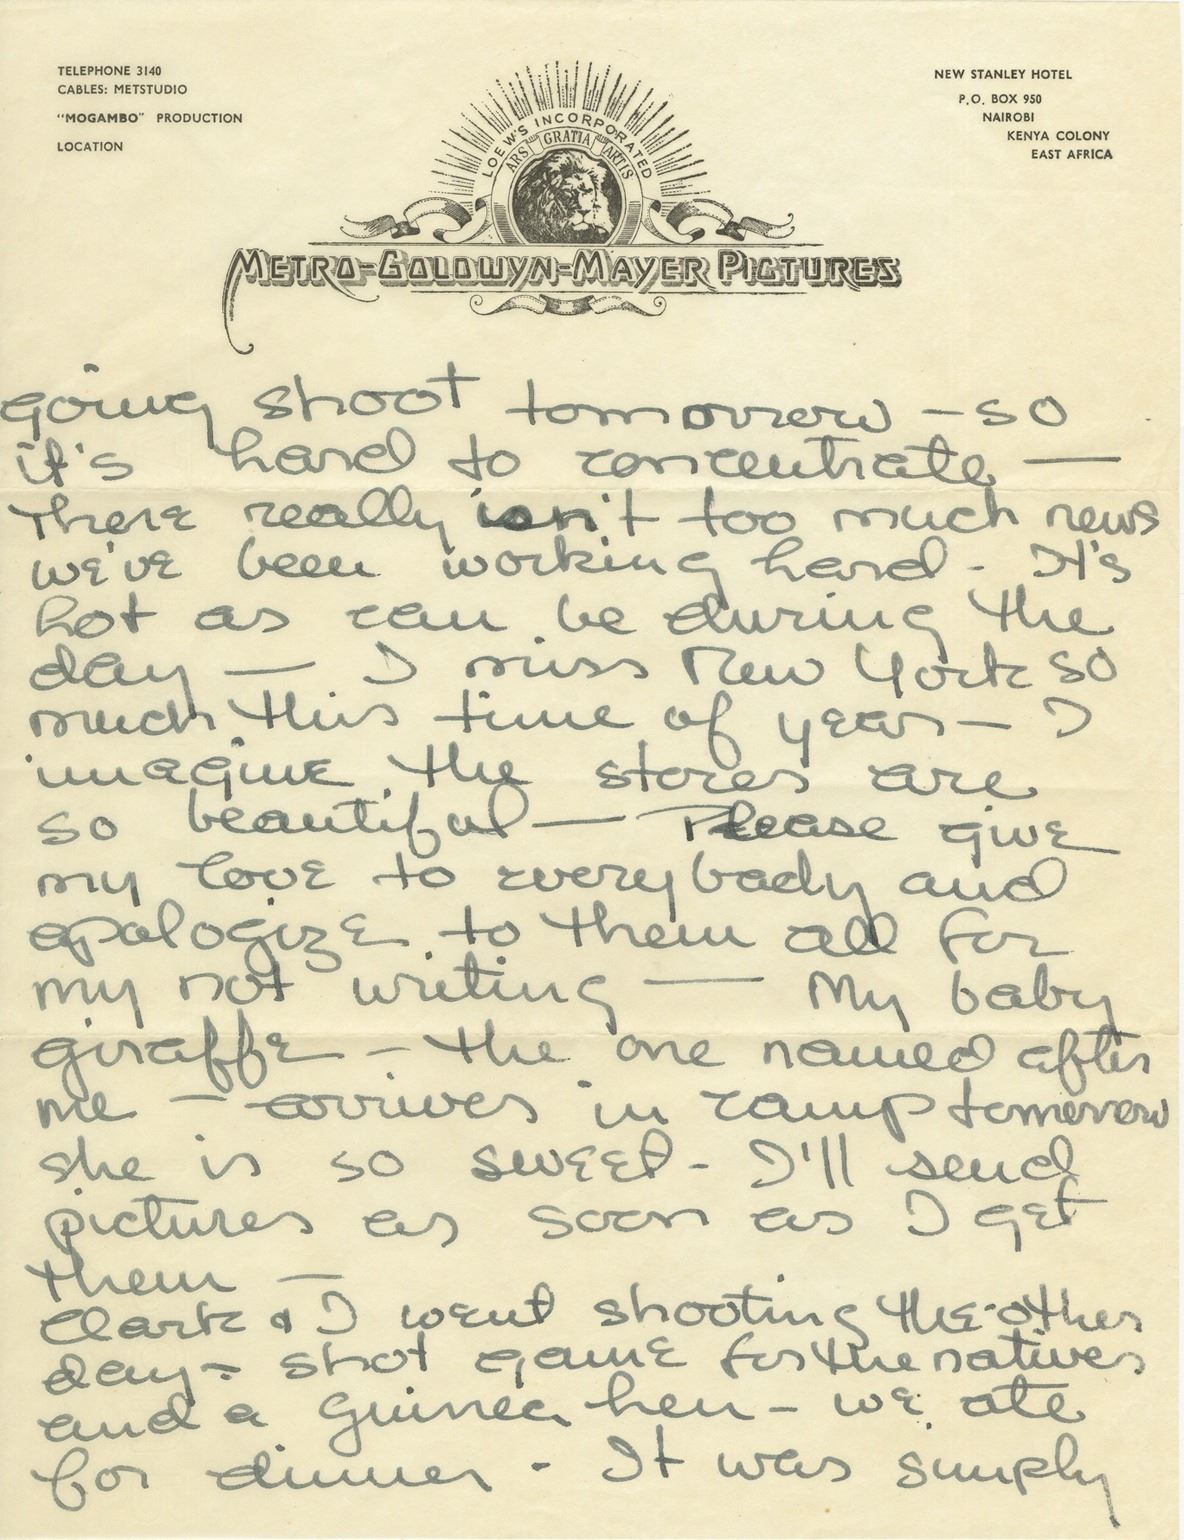 TELEPHONE 3140
CABLES: METSTUDIO
"MOGAMBO" PRODUCTION
LOCATION
NEW STANLEY HOTEL
P.O. BOX 950
NAIROBI
KENYA COLONY
EAST AFRICA
LOEW'S INCORPORATED
ARS GRATIA ARTIS
METRO-GOLDWYN-MAYER PICTURES
going shoot tomorrow – so
it's hard to concentrate —
There really isn't too much news
we've been working hard - It's
hot as can be during the
day — I miss New York so
much this time of year – I
imagine the stores are
so beautiful — Please give
my love to everybady and
apologize to them all for
my not writing — My baby
giraffe – the one named after
me – arrives in camp tomorrow
she is so sweet - I'll send
pictures as soon as I get
them —
Clark & I went shooting the other
day – shot game for the natives
and a guinea hen – we ate
for dinner - It was simply